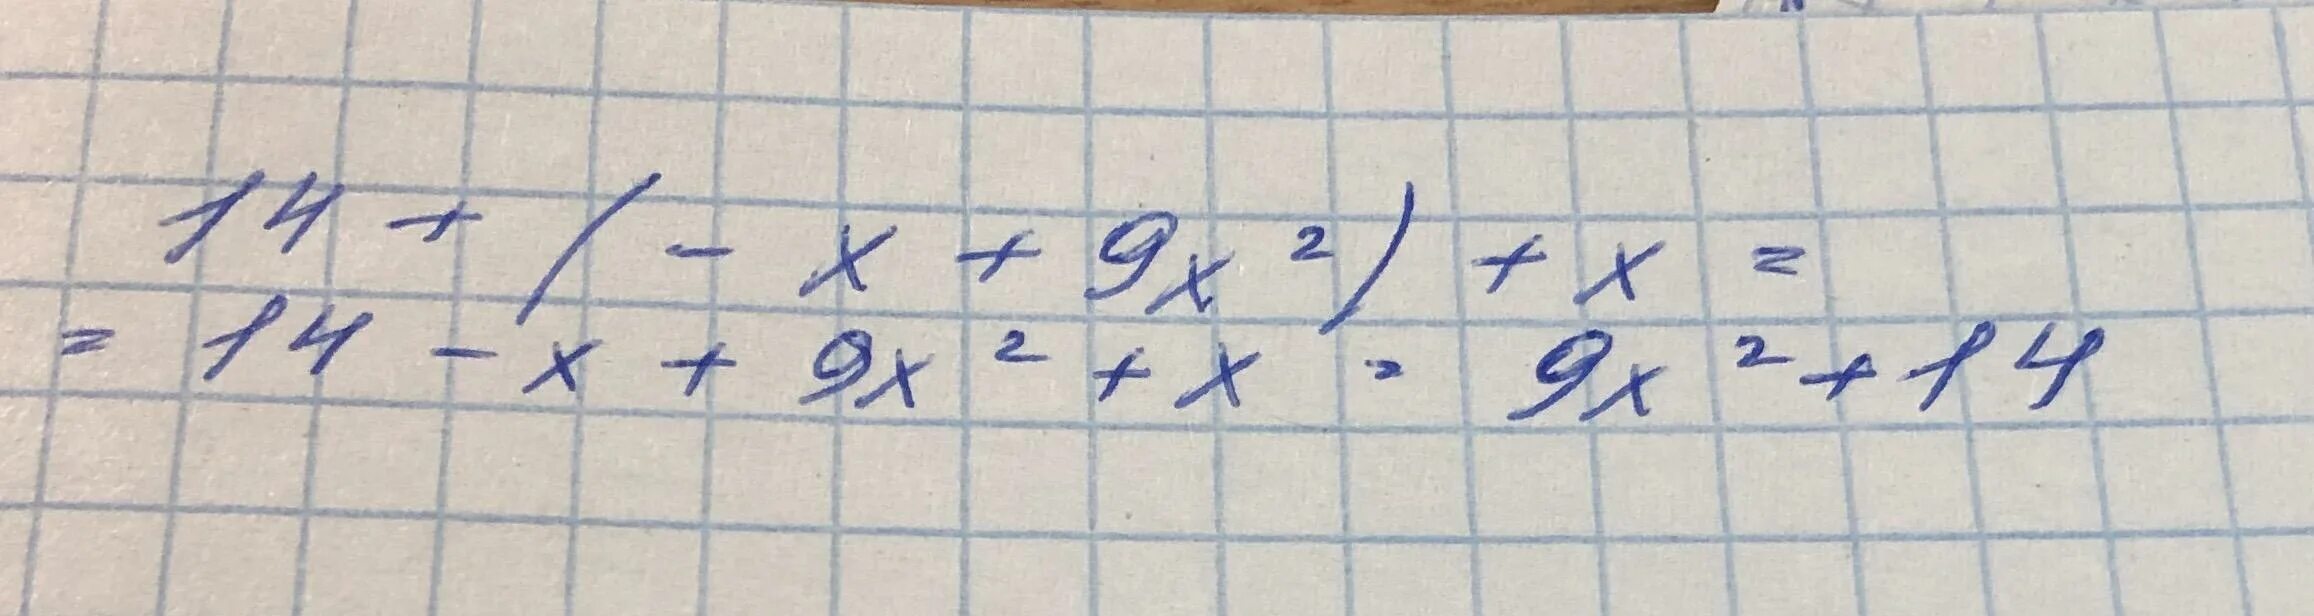 14 + ( - x + 9x² ) + x =
= 14 - x + 9x² + x = 9x² + 14